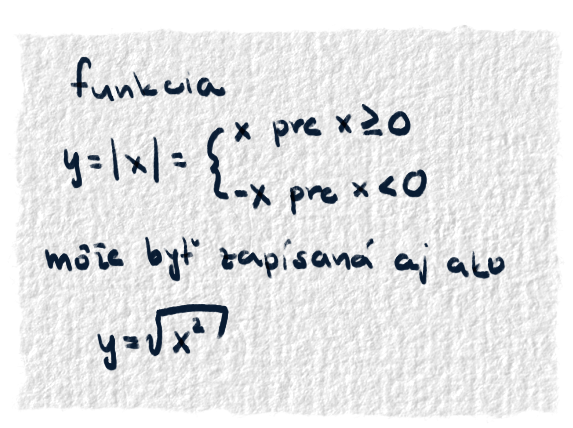 funkcia
y = |x| = { x pre x ≥ 0
-x pre x < 0
môže byť zapísaná aj ako
y = √x²